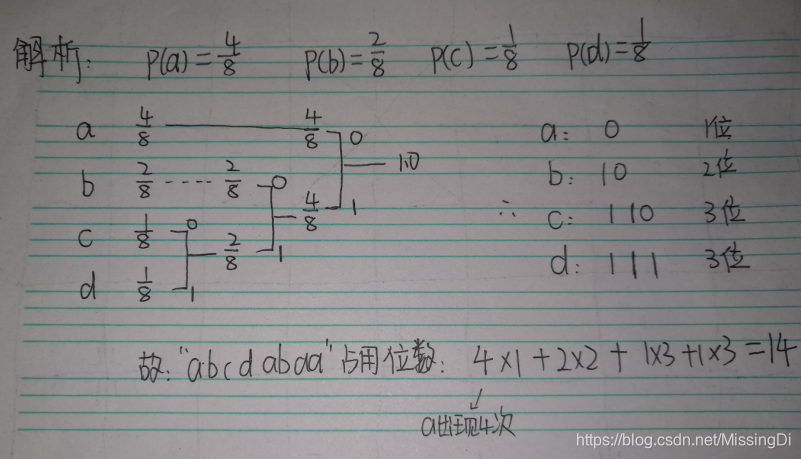 解析: P(a)=4/8 P(b)=2/8 P(c)=1/8 P(d)=1/8
a 4/8 4/8 0 1.0 a: 0 1位
b 2/8 ---- 2/8 0 4/8 1 b: 10 2位
c 1/8 0 2/8 1 ∴ c: 110 3位
d 1/8 1 d: 111 3位
故: "abcd abaa" 占用位数: 4×1+2×2+1×3+1×3=14
a出现4次
https://blog.csdn.net/MissingDi